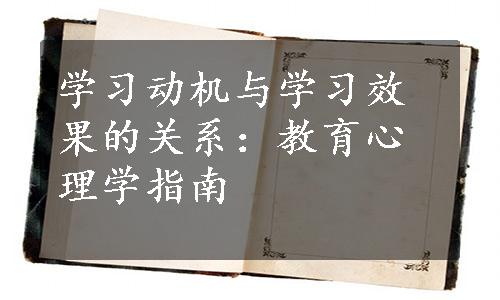 学习动机与学习效
果的关系：教育心
理学指南